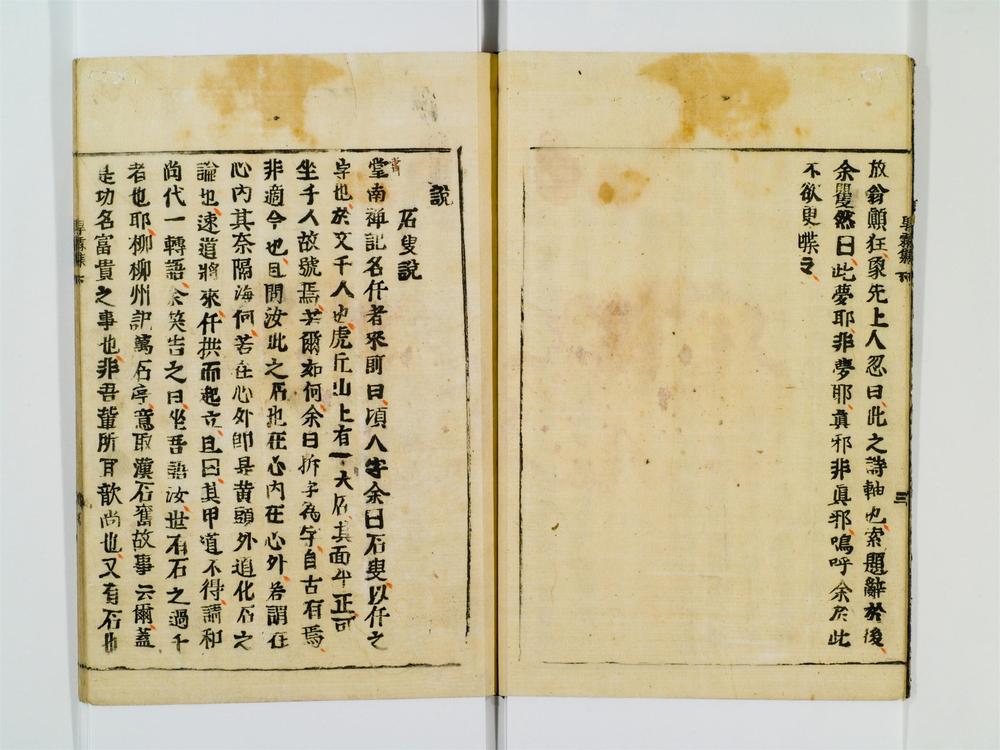 放翁顛狂象先上人忽曰此之詩軸也索題辭於後
余矍然曰此夢耶非夢耶眞邪非眞邪嗚呼余於此
不欲更喋々
三
說
石叟說
掌南禪記名仟者來前曰頃人字余曰石叟以仟之
字也於文千人也虎丘山上有一大石其面平正可
坐千人故號焉若爾如何余曰拆字為字自古有焉
非適今也且問汝此之石也在心內在心外若謂在
心內其奈隔海何若在心外卽是黃頭外道化石之
論也速道將來仟拱而起立且曰其甲道不得請和
尚代一轉語余笑告之曰坐吾語汝世有石之過千
者也耶柳柳州記萬石亭意取漢石奮故事云爾蓋
是功名富貴之事也非吾輩所可歆尚也又有石也